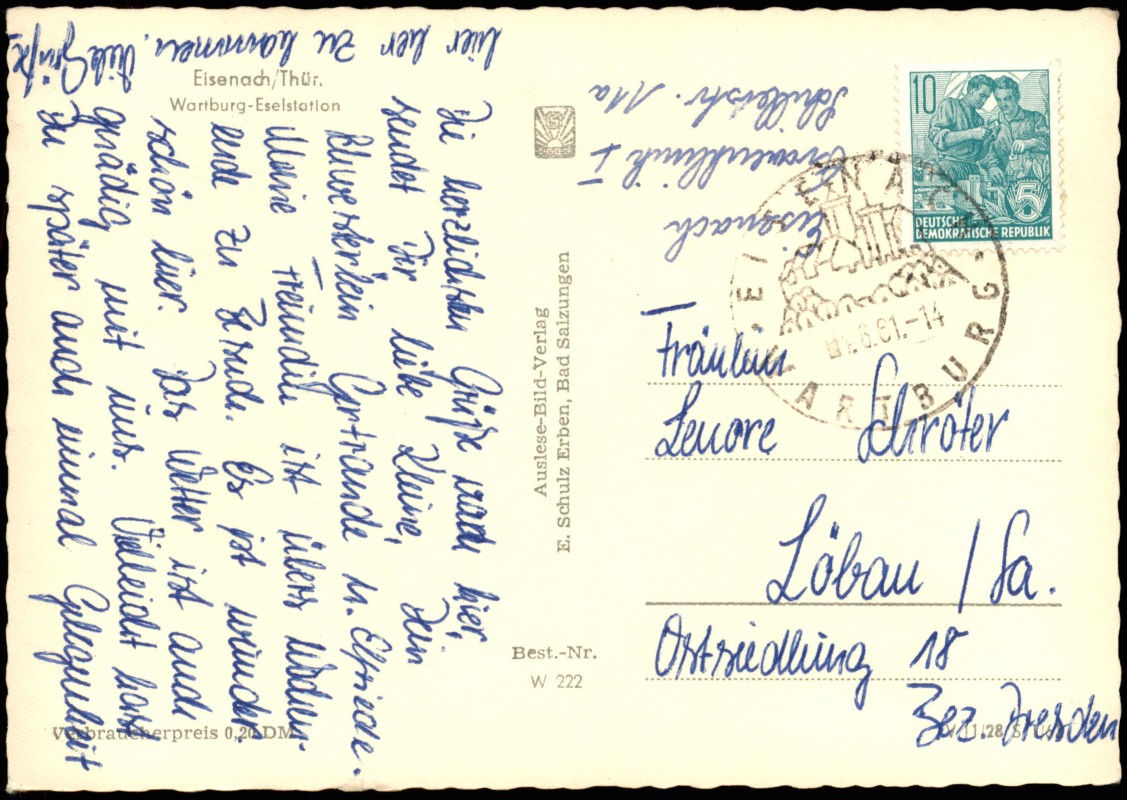 Eisenach/Thür.
Wartburg-Eselstation
Die herzlichsten Grüße von hier,
sendet Dir liebe Kleine, Dein
Gertraude u. Elfriede.
Meine Freundin ist übers Wochen-
ende zu Besuch. Es ist wunder-
schön hier. Das Wetter ist auch
gnädig mit uns. Vielleicht hast
Du später auch einmal Gelegenheit
hier her zu kommen. Viele Grüße
Verbraucherpreis 0,20 DM
Auslese-Bild-Verlag
E. Schulz Erben, Bad Salzungen
Best.-Nr.
W 222
Eisenach
Frauenklinik I
Schillerstr. 11a
10
5
DEUTSCHE
DEMOKRATISCHE REPUBLIK
EISENACH
WARTBURG
6.61.-14
Fräulein
Lenore Schröter
Löbau / Sa.
Ostsiedlung 18
Bez. Dresden